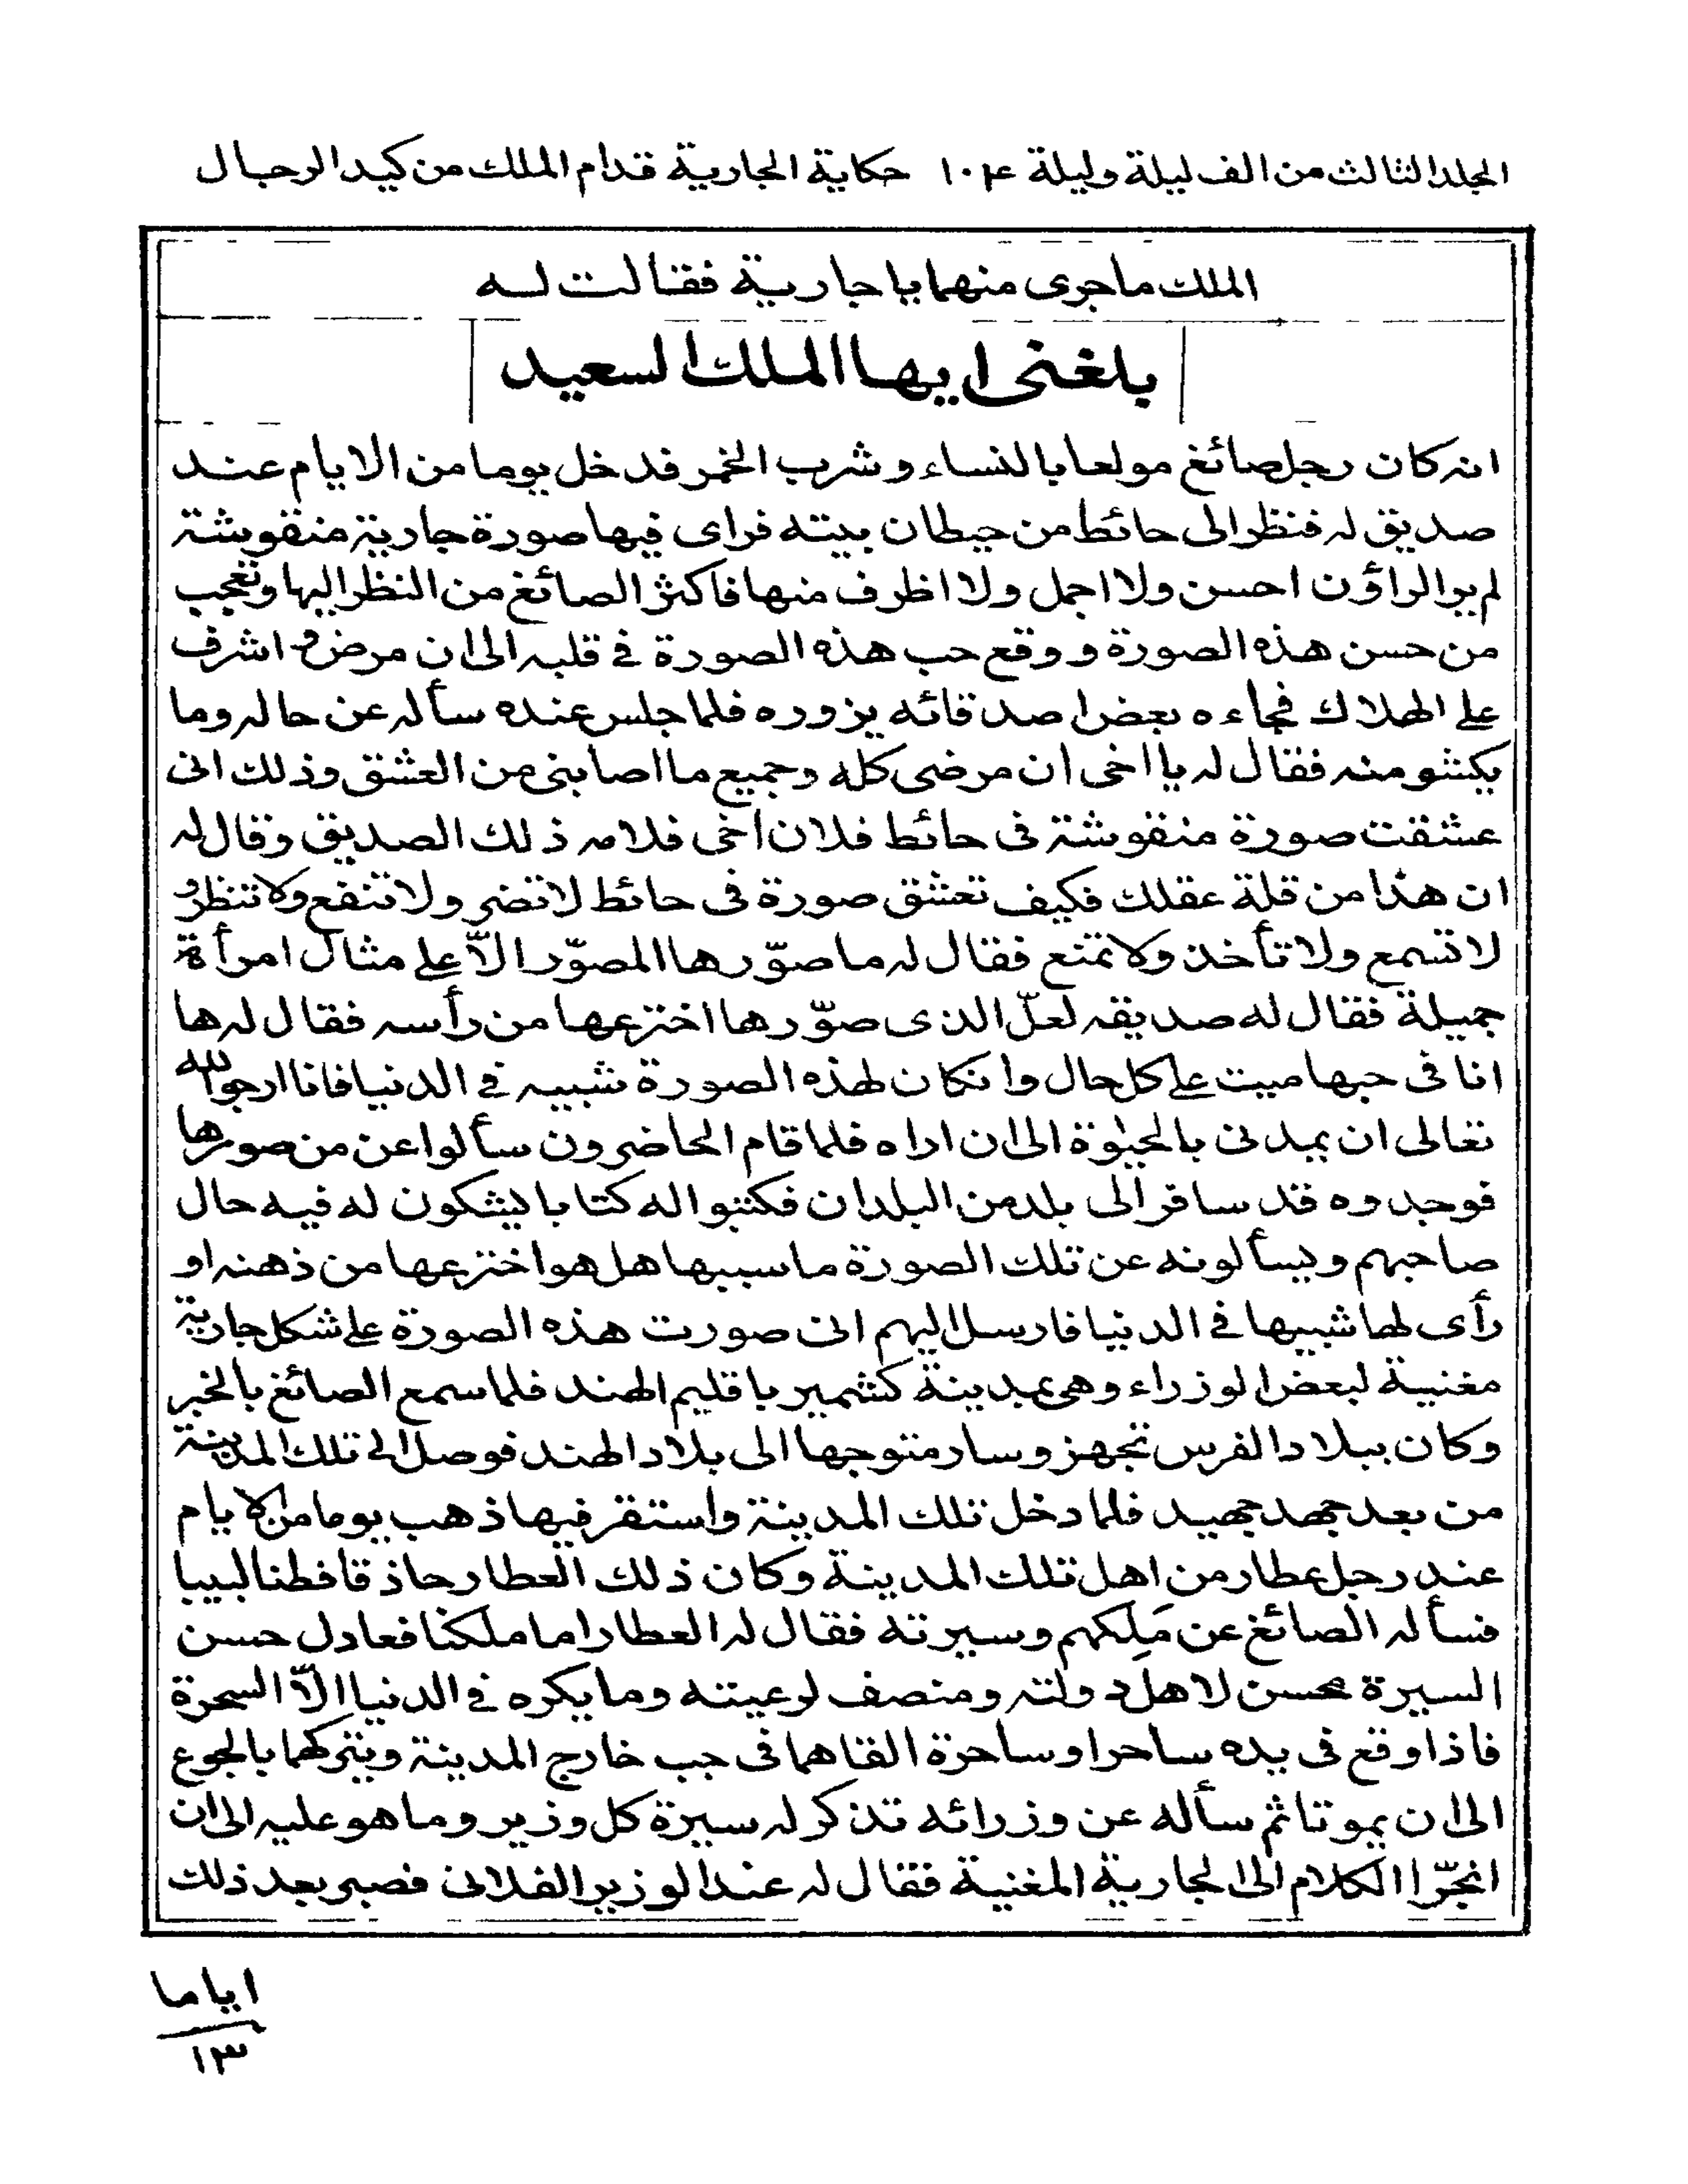 المجلد الثالث من الف ليلة وليلة ١٠٤ حكاية الجارية قدام الملك من كيد الرجال
الملك ما جرى منهما يا جارية فقالت له
بلغنى ايها الملك السعيد
انه كان رجل صائغ مولعا بالنساء وشرب الخمر فدخل يوما من الايام عند
صديق له فنظر الى حائط من حيطان بيته فراى فيها صورة جارية منقوشة
لم ير الراؤن احسن ولا اجمل ولا اظرف منها فاكثر الصائغ من النظر اليها وتعجب
من حسن هذه الصورة ووقع حب هذه الصورة فى قلبه الى ان مرض واشرف
على الهلاك فجاءه بعض اصدقائه يزوره فلما جلس عنده سأله عن حاله وما
يكشو منه فقال له يا اخى ان مرضى كله وجميع ما اصابنى من العشق وذلك انى
عشقت صورة منقوشة فى حائط فلان اخى فلامه ذلك الصديق وقال له
ان هذا من قلة عقلك فكيف تعشق صورة فى حائط لا تضر ولا تنفع ولا تنظر و
لا تسمع ولا تأخذ ولا تمتع فقال له ما صوّرها المصوّر الاّ على مثال امرأة
جميلة فقال له صديقه لعلّ الذى صوّرها اخترعها من رأسه فقال له ها
انا فى حبها ميت على كل حال وانكان لهذه الصورة شبيه فى الدنيا فانا ارجو الله
تعالى ان يمدنى بالحيوة الى ان اراه فلما قام الحاضرون سألوا عن من صورها
فوجدوه قد سافر الى بلد من البلدان فكتبوا له كتابا يشكون له فيه حال
صاحبهم ويسألونه عن تلك الصورة ما سببها هل هو اخترعها من ذهنه او
رأى لها شبيها فى الدنيا فارسل اليهم انى صورت هذه الصورة على شكل جارية
مغنية لبعض الوزراء وهى بمدينة كشمير باقليم الهند فلما سمع الصائغ بالخبر
وكان ببلاد الفرس تجهز وسار متوجها الى بلاد الهند فوصل الى تلك المدينة
من بعد جهد جهيد فلما دخل تلك المدينة واستقر فيها ذهب يوما من الايام
عند رجل عطار من اهل تلك المدينة وكان ذلك العطار حاذقا فطنا لبيبا
فسأله الصائغ عن مَلِكهم وسيرته فقال له العطار اما ملكنا فعادل حسن
السيرة محسن لاهل دولته ومنصف لرعيته وما يكره فى الدنيا الاّ السحرة
فاذا وقع فى يده ساحر او ساحرة القاهما فى جب خارج المدينة ويتركهما بالجوع
الى ان يموتا ثم سأله عن وزرائه تذكر له سيرة كل وزير وما هو عليه الى ان
انجرّا الكلام الى الجارية المغنية فقال له عند الوزير الفلانى فصبر بعد ذلك
اياما
١٣